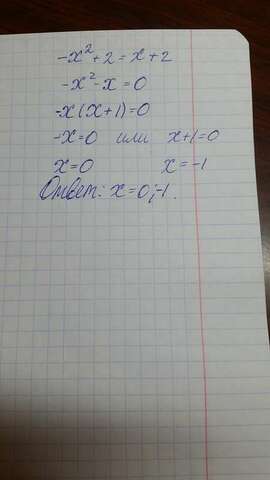 -x²+2=x+2
-x²-x=0
-x(x+1)=0
-x=0 или x+1=0
x=0 x=-1
Ответ: x=0;-1.